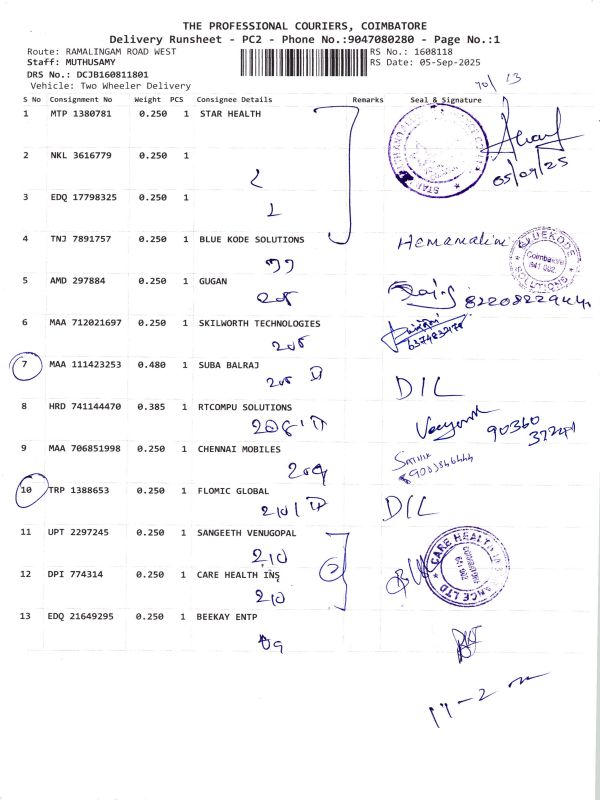 THE PROFESSIONAL COURIERS, COIMBATORE
Delivery Runsheet - PC2 - Phone No.:9047080280 - Page No.:1
Route: RAMALINGAM ROAD WEST
RS No.: 1608118
Staff: MUTHUSAMY
RS Date: 05-Sep-2025
DRS No.: DCJB160811801
Vehicle: Two Wheeler Delivery
S No Consignment No Weight PCS Consignee Details Remarks Seal & Signature
1 MTP 1380781 0.250 1 STAR HEALTH
05/09/25
2 NKL 3616779 0.250 1
3 EDQ 17798325 0.250 1
4 TNJ 7891757 0.250 1 BLUE KODE SOLUTIONS Hemamalini
BLUEKODE SOLUTIONS Coimbatore 641 002.
5 AMD 297884 0.250 1 GUGAN
208
6 MAA 712021697 0.250 1 SKILWORTH TECHNOLOGIES
208
7 MAA 111423253 0.480 1 SUBA BALRAJ
208 D/L
8 HRD 741144470 0.385 1 RTCOMPU SOLUTIONS
208 90360
9 MAA 706851998 0.250 1 CHENNAI MOBILES
209
10 TRP 1388653 0.250 1 FLOMIC GLOBAL
210 D/L
11 UPT 2297245 0.250 1 SANGEETH VENUGOPAL
210
12 DPI 774314 0.250 1 CARE HEALTH INS
210
CARE HEALTH INSURANCE LTD COIMBATORE 641 002
13 EDQ 21649295 0.250 1 BEEKAY ENTP